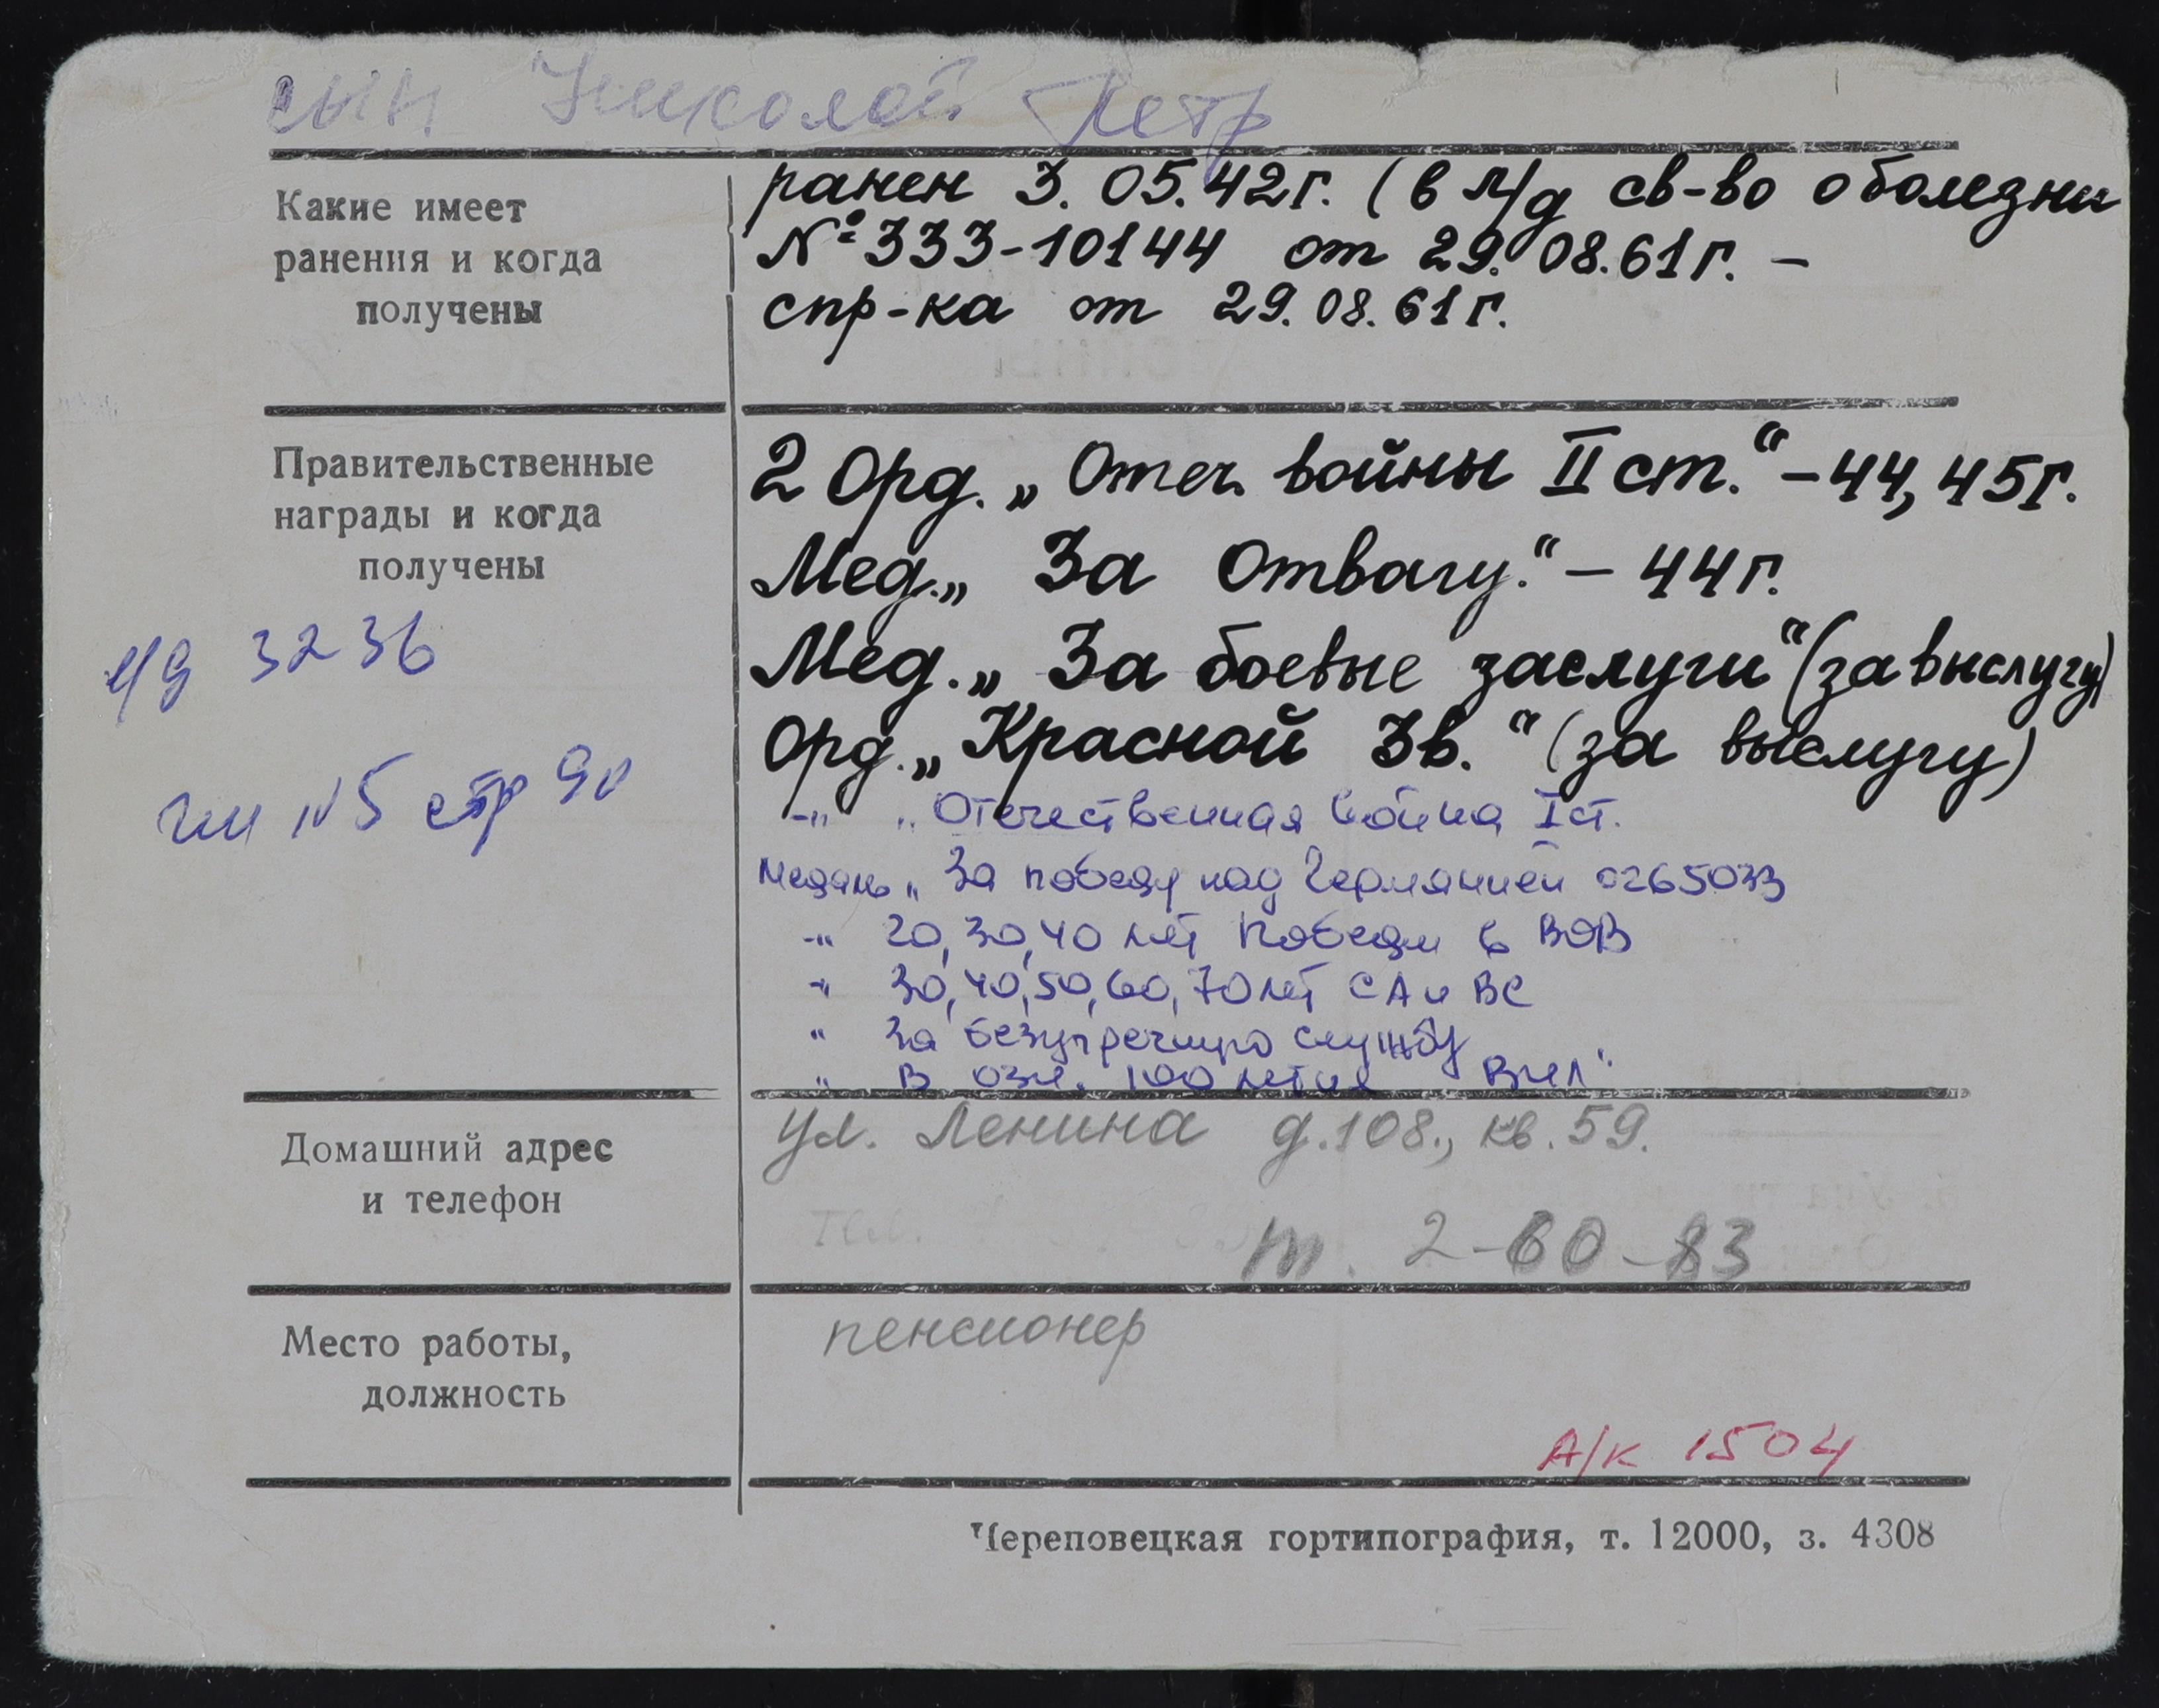 сын Николай Петр
Какие имеет
ранения и когда
получены
ранен 3.05.42г. (в л/д св-во о болезни
№333-10144 от 29.08.61г. –
спр-ка от 29.08.61г.
Правительственные
награды и когда
получены
2 Орд. „Отеч. войны II ст.“ – 44, 45г.
Мед. „За Отвагу.“ – 44г.
Мед. „За боевые заслуги“ (за выслугу)
Орд. „Красной Зв.“ (за выслугу)
-„- „Отечественная война I ст.
Медаль „За победу над Германией 0265033
-„ 20, 30, 40 лет Победы в ВОВ
-„ 30, 40, 50, 60, 70 лет СА и ВС
„ За безупречную службу
„ В озн. 100 летия ВИЛ“
3236
№5 стр 90
Домашний адрес
и телефон
ул. Ленина д.108., кв.59.
тел.
т. 2-60-83
Место работы,
должность
пенсионер
А/к 1504
Череповецкая гортипография, т. 12000, з. 4308